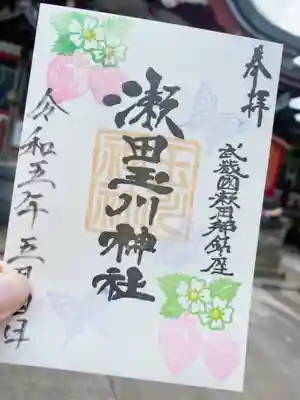 奉拝
武蔵国荏原郡鎮座
瀬田玉川神社
令和五年五月四日